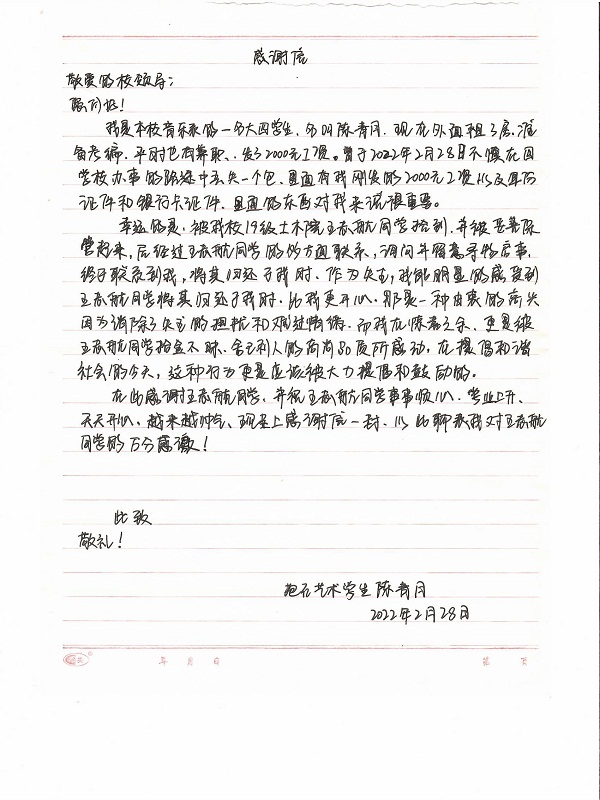 感谢信
敬爱的校领导:
您们好!
我是本校音乐系的一名大四学生,名叫陈青月。现在外面租了房,准
备考编,平时也有兼职、发了2000元工资。曾于2022年2月28日不慎在回
学校办事的路途中丢失一个包,里面有我刚发的2000元工资以及身份
证件和银行卡证件,里面的东西对我来说很重要。
幸运的是,被我校19级土木院王志航同学拾到,并被妥善保
管起来,后经过王志航同学的多方面联系,询问并留意寻物启事,
终于联系到我,将其归还于我时,作为失主,我能明显的感受到
王志航同学将其归还于我时,比我更开心,那是一种由衷的高兴
因为消除了失主的担忧和难过情绪。而我在惊喜之余,更是被
王志航同学拾金不昧、舍己利人的高尚品质所感动,在提倡和谐
社会的今天,这种行为更是应该被大力提倡和鼓励的。
在此感谢王志航同学,并祝王志航同学事事顺心、学业上升、
天天开心、越来越帅气、现呈上感谢信一封,以此聊表我对王志航
同学的万分感激!
此致
敬礼!
艺术学生 陈青月
2022年2月28日
年 月 日
第 页